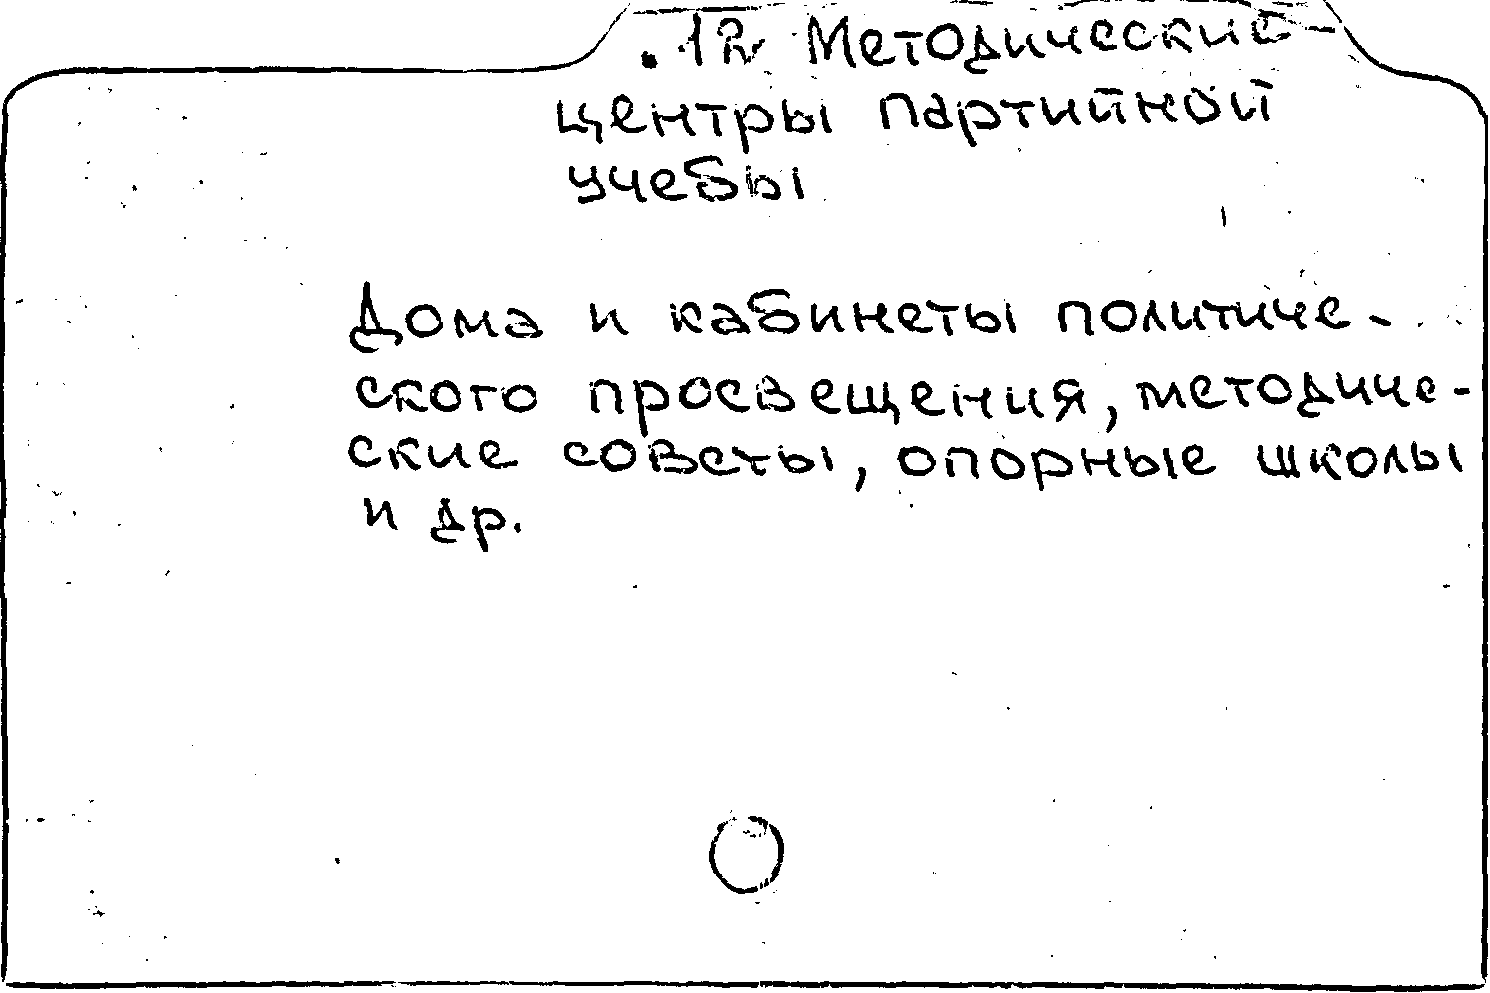 .12 Методические
центры партийной
учебы
Дома и кабинеты политиче-
ского просвещения, методиче-
ские советы, опорные школы
и др.